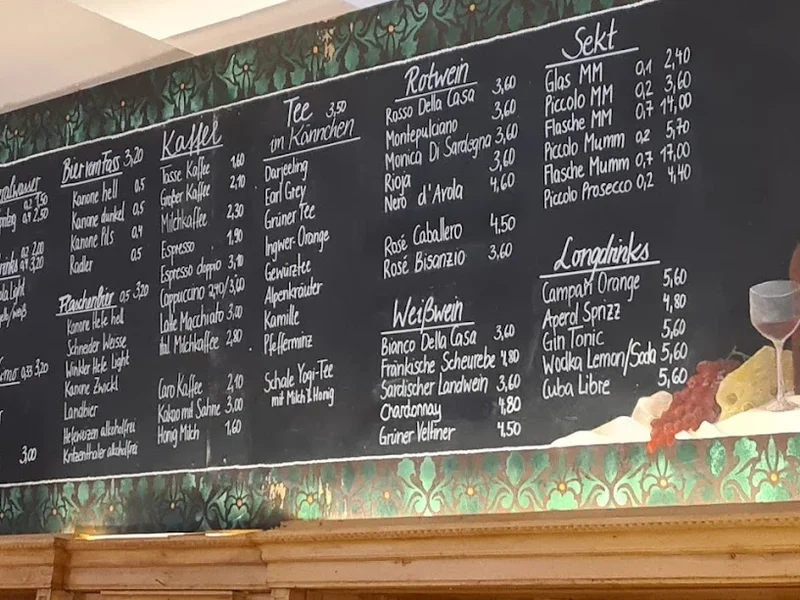 0,2 1,50
0,4 2,50
0,2 2,00
0,4 3,20
Light
0,33 3,20
3,00
Bier vom Fass 3,20
Kanone hell 0,5
Kanone dunkel 0,5
Kanone Pils 0,4
Radler 0,5
Flaschenbier 0,5 3,20
Kanone Hefe hell
Schneider Weisse
Winkler Hefe Light
Kanone Zwickl
Landbier
Hefeweizen alkoholfrei
Kritzenthaler alkoholfrei
Kaffee
Tasse Kaffee 1,60
Großer Kaffee 2,10
Milchkaffee 2,30
Espresso 1,90
Espresso doppio 3,10
Cappuccino 2,40/3,60
Latte Macchiato 3,00
Ital. Milchkaffee 2,80
Caro Kaffee 2,10
Kakao mit Sahne 3,00
Honig Milch 1,60
Tee 3,50
im Kännchen
Darjeeling
Earl Grey
Grüner Tee
Ingwer-Orange
Gewürztee
Alpenkräuter
Kamille
Pfefferminz
Schale Yogi-Tee
mit Milch & Honig
Rotwein
Rosso Della Casa 3,60
Montepulciano 3,60
Monica Di Sardegna 3,60
Rioja 3,60
Nero d'Avola 4,60
Rosé Caballero 4,50
Rosé Bisanzio 3,60
Weißwein
Bianco Della Casa 3,60
Fränkische Scheurebe 4,80
Sardischer Landwein 3,60
Chardonnay 4,80
Grüner Veltiner 4,50
Sekt
Glas MM 0,1 2,40
Piccolo MM 0,2 3,60
Flasche MM 0,7 14,00
Piccolo Mumm 0,2 5,70
Flasche Mumm 0,7 17,00
Piccolo Prosecco 0,2 4,40
Longdrinks
Campari Orange 5,60
Aperol Sprizz 4,80
Gin Tonic 5,60
Wodka Lemon/Soda 5,60
Cuba Libre 5,60